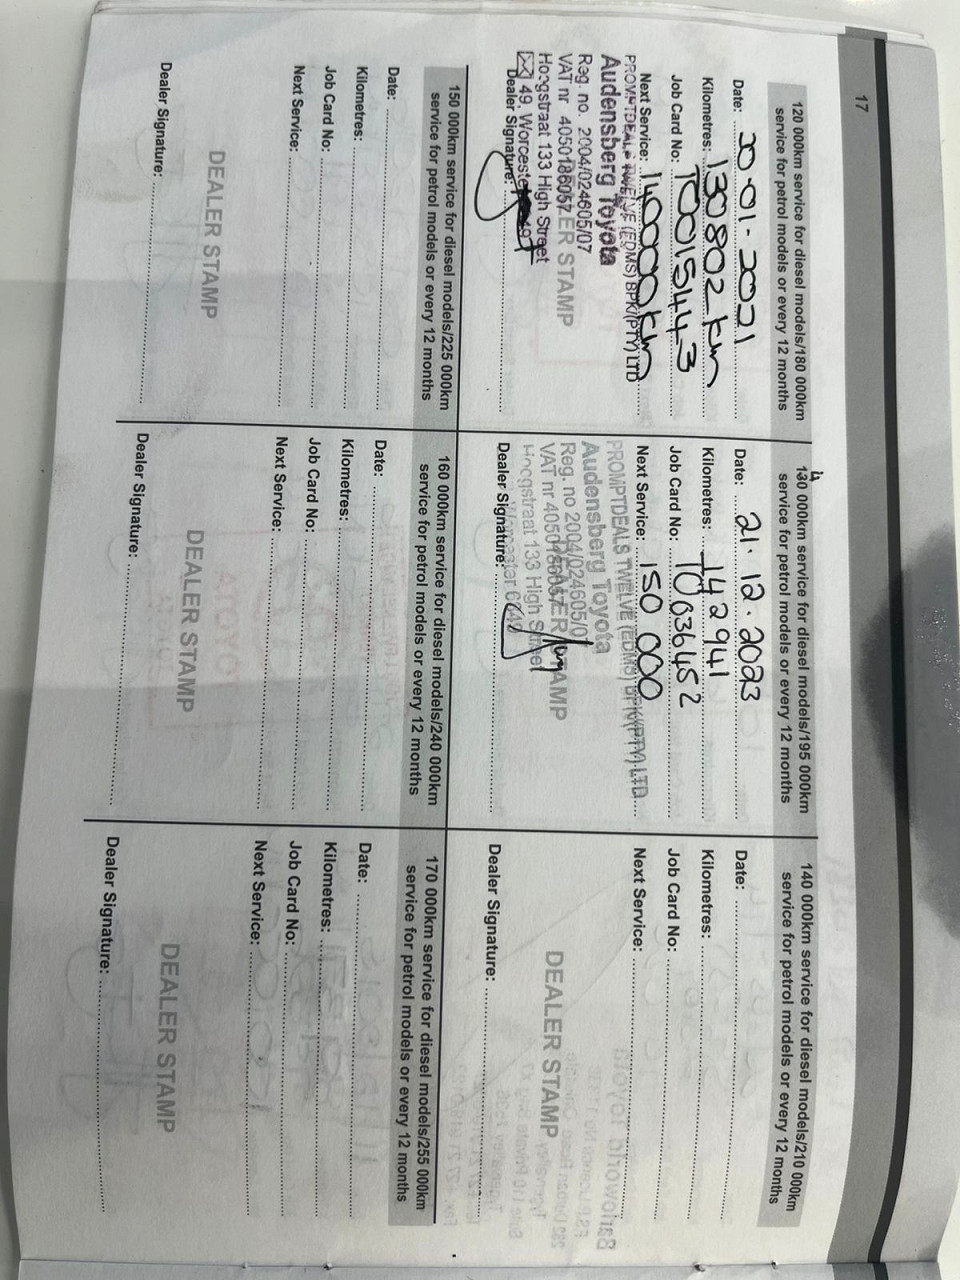 17
120 000km service for diesel models/180 000km
service for petrol models or every 12 months
Date:
Kilometres: 130802 km
Job Card No: T0015443
Next Service: 140000km
PROMPTDEALS TWELVE (EDMS) BPK/(PTY) LTD
Audensberg Toyota
Reg. no. 2004/024605/07
VAT nr 4050186057
DEALER STAMP
Hoogstraat 133 High Street
49, Worcester
Dealer Signature:
14
130 000km service for diesel models/195 000km
service for petrol models or every 12 months
Date: 21.12.2023
Kilometres: 142941
Job Card No: T0036452
Next Service: 150 000
PROMPTDEALS TWELVE (EDMS) BPK/(PTY) LTD
Audensberg Toyota
Reg. no 2004/024605/07
VAT nr 4050186057
DEALER STAMP
Hoogstraat 133 High Street
Worcester
Dealer Signature:
140 000km service for diesel models/210 000km
service for petrol models or every 12 months
Date:
Kilometres:
Job Card No:
Next Service:
DEALER STAMP
Dealer Signature:
150 000km service for diesel models/225 000km
service for petrol models or every 12 months
Date:
Kilometres:
Job Card No:
Next Service:
DEALER STAMP
Dealer Signature:
160 000km service for diesel models/240 000km
service for petrol models or every 12 months
Date:
Kilometres:
Job Card No:
Next Service:
DEALER STAMP
Dealer Signature:
170 000km service for diesel models/255 000km
service for petrol models or every 12 months
Date:
Kilometres:
Job Card No:
Next Service:
DEALER STAMP
Dealer Signature: